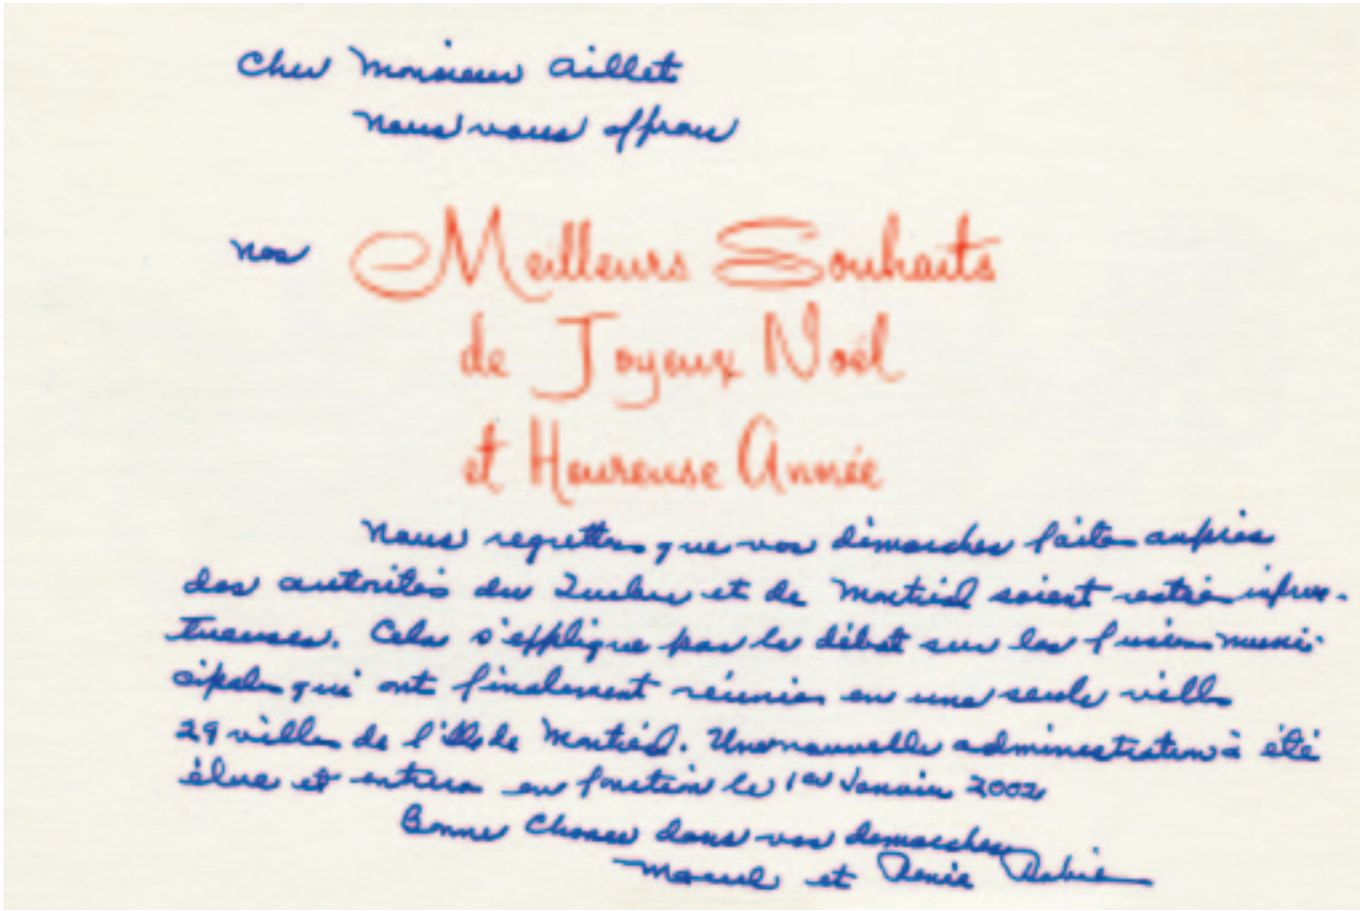 Cher Monsieur Aillet
Nous vous offrons
nos Meilleurs Souhaits
de Joyeux Noël
et Heureuse Année
Nous regrettons que vos démarches faites auprès
des autorités du Québec et de Montréal soient restées infruc-
tueuses. Cela s'explique par le débat sur les fusions muni-
cipales qui ont finalement réunies en une seule ville
29 villes de l'île de Montréal. Une nouvelle administration à été
élue et entrera en fonction le 1er Janvier 2002
Bonne Chance dans vos demarches
Marcel et